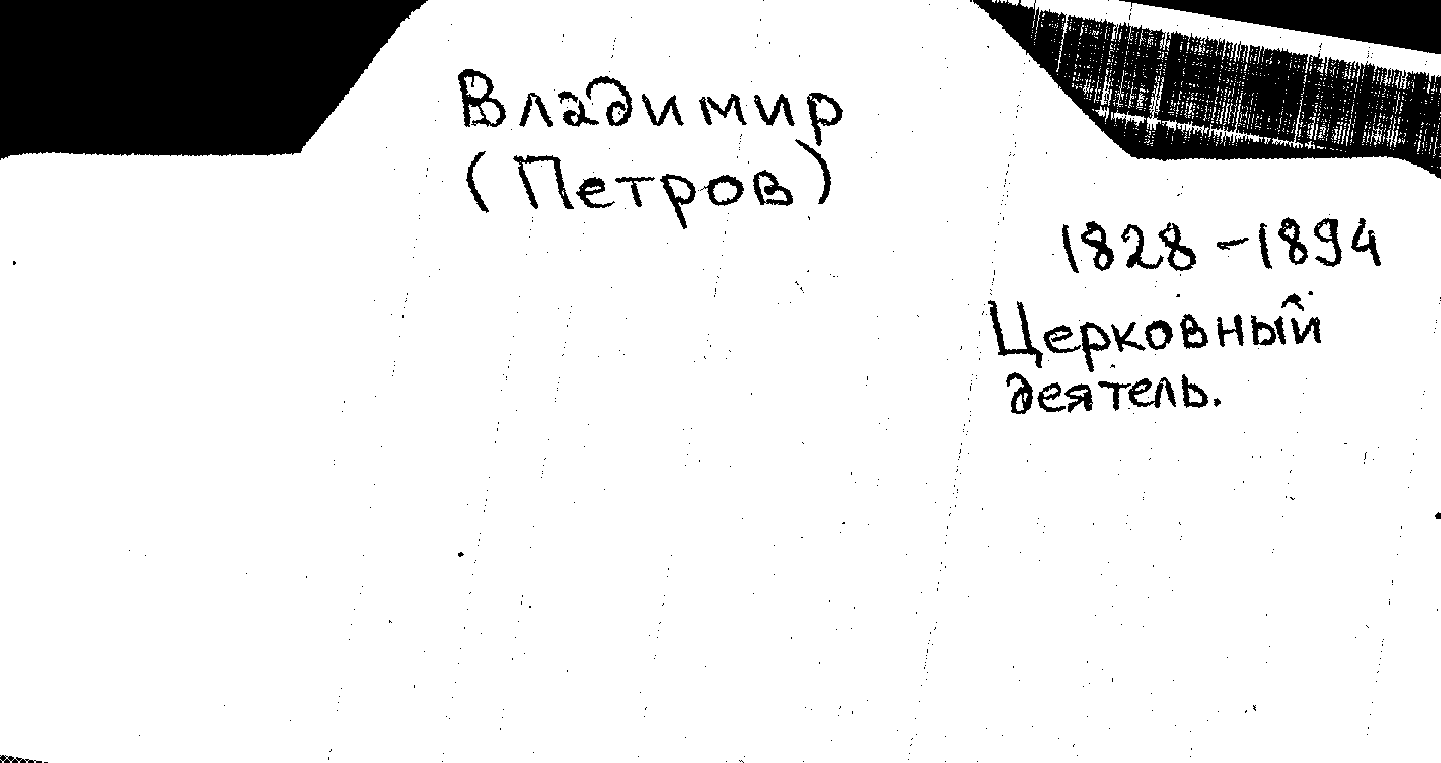 Владимир
(Петров)
1828-1894
Церковный
деятель.